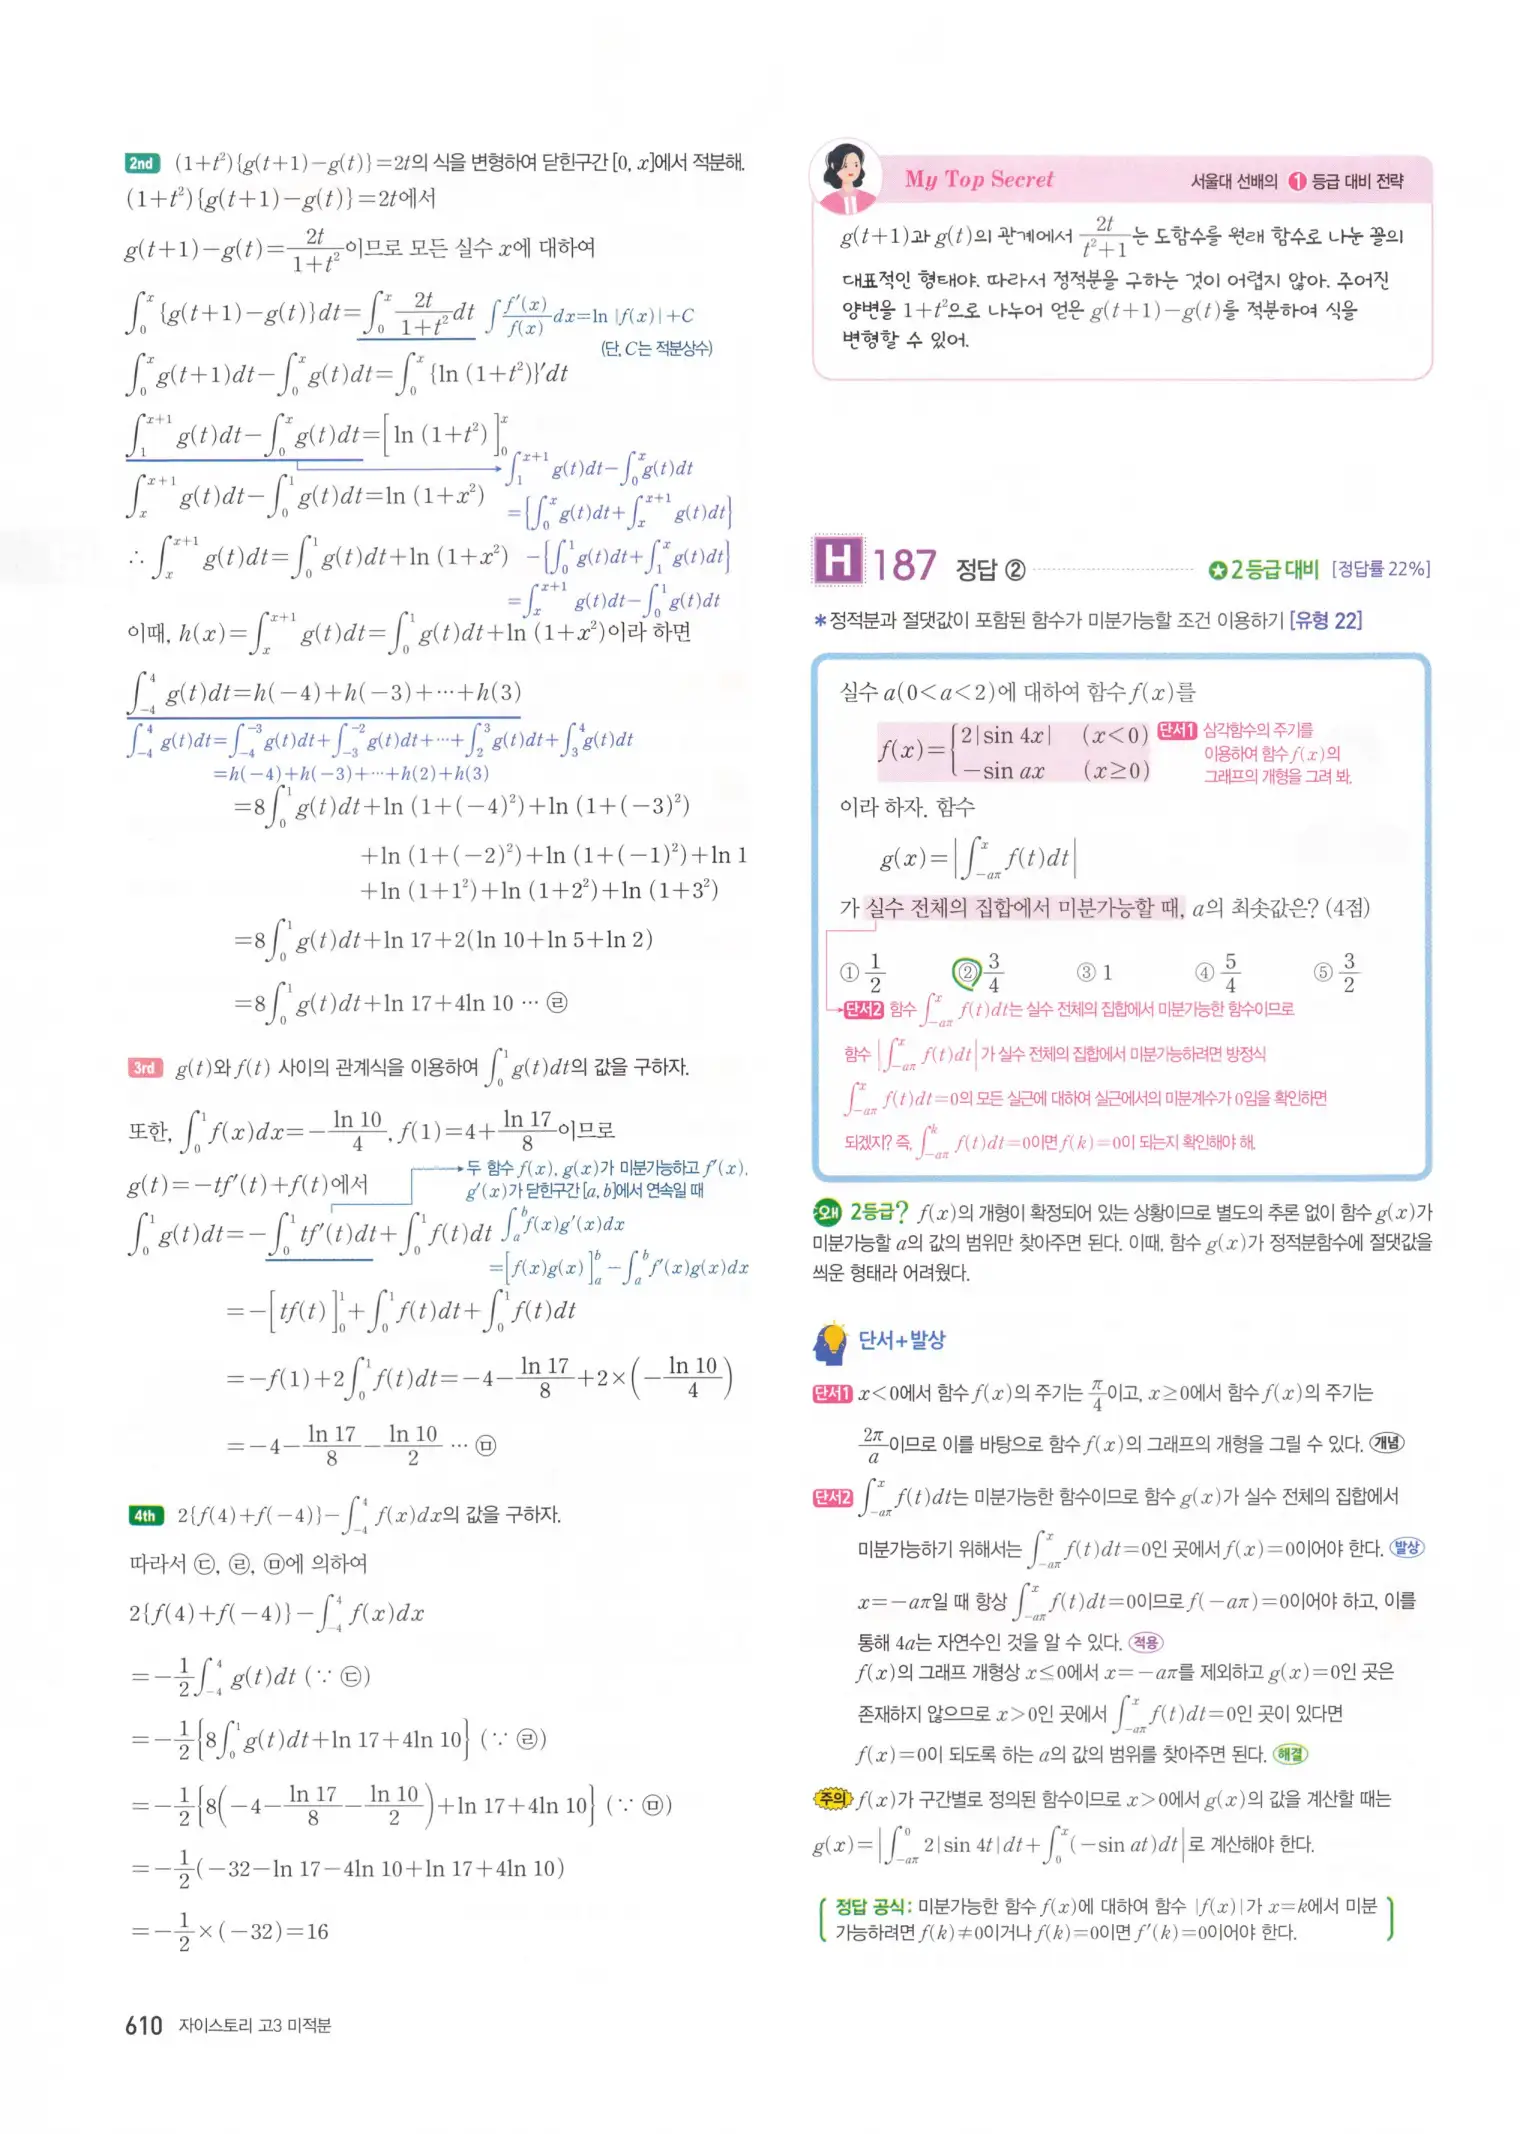 2nd (1+t²){g(t+1)-g(t)}=2t의 식을 변형하여 닫힌구간 [0, x]에서 적분해.
(1+t²){g(t+1)-g(t)}=2t에서
g(t+1)-g(t)=2t/(1+t²)이므로 모든 실수 x에 대하여
∫₀ˣ {g(t+1)-g(t)}dt=∫₀ˣ 2t/(1+t²) dt ∫f'(x)/f(x) dx=ln |f(x)|+C
(단, C는 적분상수)
∫₀ˣ g(t+1)dt-∫₀ˣ g(t)dt=∫₀ˣ {ln (1+t²)}'dt
∫₁ˣ⁺¹ g(t)dt-∫₀ˣ g(t)dt=[ln (1+t²)]₀ˣ
∫₁ˣ⁺¹ g(t)dt-∫₀ˣ g(t)dt
∫ₓˣ⁺¹ g(t)dt-∫₀¹ g(t)dt=ln (1+x²)
={∫₀ˣ g(t)dt+∫ₓˣ⁺¹ g(t)dt}
∴ ∫ₓˣ⁺¹ g(t)dt=∫₀¹ g(t)dt+ln (1+x²)
-{∫₀¹ g(t)dt+∫₁ˣ g(t)dt}
=∫ₓˣ⁺¹ g(t)dt-∫₀¹ g(t)dt
이때, h(x)=∫ₓˣ⁺¹ g(t)dt=∫₀¹ g(t)dt+ln (1+x²)이라 하면
∫₋₄⁴ g(t)dt=h(-4)+h(-3)+⋯+h(3)
∫₋₄⁴ g(t)dt=∫₋₄⁻³ g(t)dt+∫₋₃⁻² g(t)dt+⋯+∫₂³ g(t)dt+∫₃⁴ g(t)dt
=h(-4)+h(-3)+⋯+h(2)+h(3)
=8∫₀¹ g(t)dt+ln (1+(-4)²)+ln (1+(-3)²)
+ln (1+(-2)²)+ln (1+(-1)²)+ln 1
+ln (1+1²)+ln (1+2²)+ln (1+3²)
=8∫₀¹ g(t)dt+ln 17+2(ln 10+ln 5+ln 2)
=8∫₀¹ g(t)dt+ln 17+4ln 10 ⋯ ㉣
3rd g(t)와 f(t) 사이의 관계식을 이용하여 ∫₀¹ g(t)dt의 값을 구하자.
또한, ∫₀¹ f(x)dx=-ln 10/4, f(1)=4+ln 17/8이므로
g(t)=-tf'(t)+f(t)에서
두 함수 f(x), g(x)가 미분가능하고 f'(x),
g'(x)가 닫힌구간 [a, b]에서 연속일 때
∫₀¹ g(t)dt=-∫₀¹ tf'(t)dt+∫₀¹ f(t)dt ∫ₐᵇ f(x)g'(x)dx
=[f(x)g(x)]ₐᵇ-∫ₐᵇ f'(x)g(x)dx
=-[tf(t)]₀¹+∫₀¹ f(t)dt+∫₀¹ f(t)dt
=-f(1)+2∫₀¹ f(t)dt=-4-ln 17/8+2×(-ln 10/4)
=-4-ln 17/8-ln 10/2 ⋯ ㉤
4th 2{f(4)+f(-4)}-∫₋₄⁴ f(x)dx의 값을 구하자.
따라서 ㉢, ㉣, ㉤에 의하여
2{f(4)+f(-4)}-∫₋₄⁴ f(x)dx
=-1/2∫₋₄⁴ g(t)dt (∵ ㉢)
=-1/2{8∫₀¹ g(t)dt+ln 17+4ln 10} (∵ ㉣)
=-1/2{8(-4-ln 17/8-ln 10/2)+ln 17+4ln 10} (∵ ㉤)
=-1/2(-32-ln 17-4ln 10+ln 17+4ln 10)
=-1/2×(-32)=16
610 자이스토리 고3 미적분
My Top Secret 서울대 선배의 1 등급 대비 전략
g(t+1)과 g(t)의 관계에서 2t/(t²+1)는 도함수를 원래 함수로 나눈 꼴의
대표적인 형태야. 따라서 정적분을 구하는 것이 어렵지 않아. 주어진
양변을 1+t²으로 나누어 얻은 g(t+1)-g(t)를 적분하여 식을
변형할 수 있어.
H 187 정답 ② ✪2등급 대비 [정답률 22%]
*정적분과 절댓값이 포함된 함수가 미분가능할 조건 이용하기 [유형 22]
실수 a(0<a<2)에 대하여 함수 f(x)를
f(x)={2|sin 4x| (x<0)
-sin ax (x≥0)
단서1 삼각함수의 주기를
이용하여 함수 f(x)의
그래프의 개형을 그려 봐.
이라 하자. 함수
g(x)=|∫₋ₐπˣ f(t)dt|
가 실수 전체의 집합에서 미분가능할 때, a의 최솟값은? (4점)
① 1/2 ② 3/4 ③ 1 ④ 5/4 ⑤ 3/2
단서2 함수 ∫₋ₐπˣ f(t)dt는 실수 전체의 집합에서 미분가능한 함수이므로
함수 |∫₋ₐπˣ f(t)dt|가 실수 전체의 집합에서 미분가능하려면 방정식
∫₋ₐπˣ f(t)dt=0의 모든 실근에 대하여 실근에서의 미분계수가 0임을 확인하면
되겠지? 즉, ∫₋ₐπᵏ f(t)dt=0이면 f(k)=0이 되는지 확인해야 해.
왜 2등급? f(x)의 개형이 확정되어 있는 상황이므로 별도의 추론 없이 함수 g(x)가
미분가능할 a의 값의 범위만 찾아주면 된다. 이때, 함수 g(x)가 정적분함수에 절댓값을
씌운 형태라 어려웠다.
단서+발상
단서1 x<0에서 함수 f(x)의 주기는 π/4이고, x≥0에서 함수 f(x)의 주기는
2π/a이므로 이를 바탕으로 함수 f(x)의 그래프의 개형을 그릴 수 있다. 개념
단서2 ∫₋ₐπˣ f(t)dt는 미분가능한 함수이므로 함수 g(x)가 실수 전체의 집합에서
미분가능하기 위해서는 ∫₋ₐπˣ f(t)dt=0인 곳에서 f(x)=0이어야 한다. 발상
x=-aπ일 때 항상 ∫₋ₐπˣ f(t)dt=0이므로 f(-aπ)=0이어야 하고, 이를
통해 4a는 자연수인 것을 알 수 있다. 적용
f(x)의 그래프 개형상 x≤0에서 x=-aπ를 제외하고 g(x)=0인 곳은
존재하지 않으므로 x>0인 곳에서 ∫₋ₐπˣ f(t)dt=0인 곳이 있다면
f(x)=0이 되도록 하는 a의 값의 범위를 찾아주면 된다. 해결
주의 f(x)가 구간별로 정의된 함수이므로 x>0에서 g(x)의 값을 계산할 때는
g(x)=|∫₋ₐπ⁰ 2|sin 4t|dt+∫₀ˣ (-sin at)dt|로 계산해야 한다.
정답 공식: 미분가능한 함수 f(x)에 대하여 함수 |f(x)|가 x=k에서 미분
가능하려면 f(k)≠0이거나 f(k)=0이면 f'(k)=0이어야 한다.